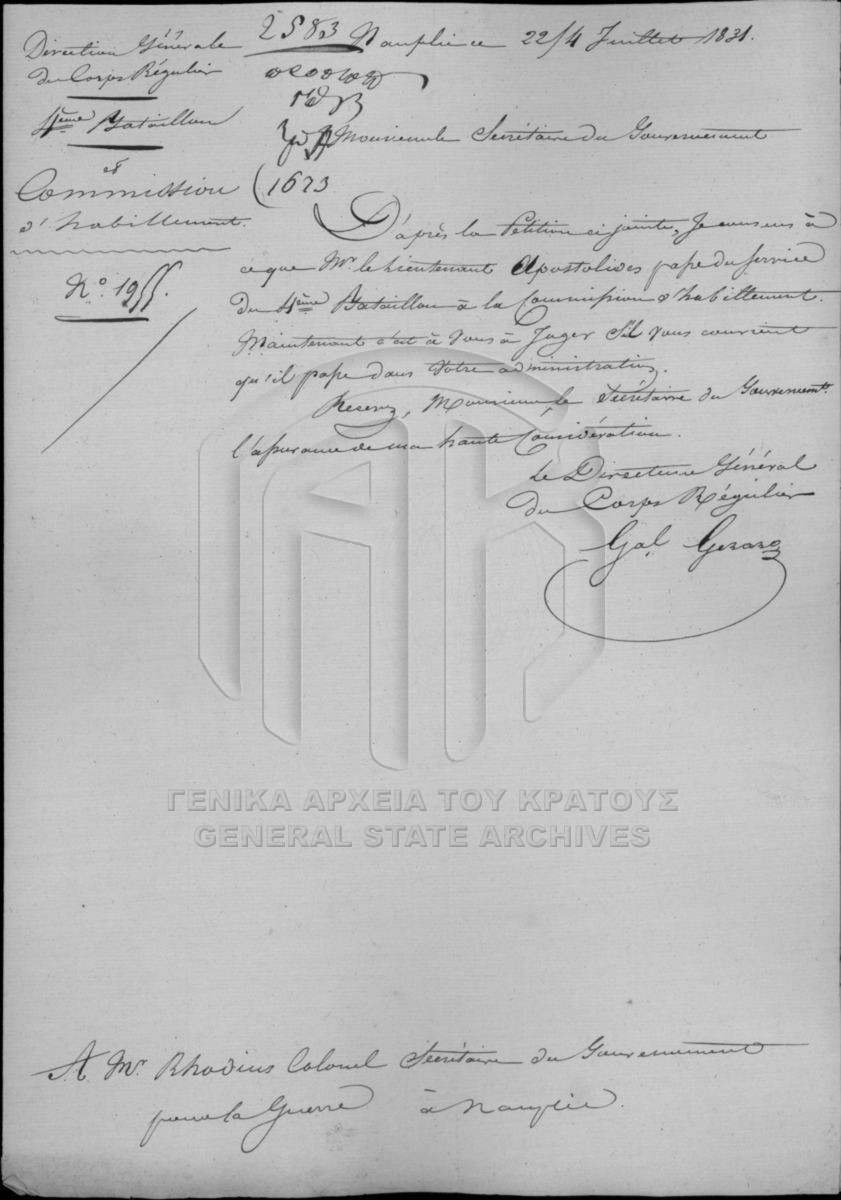 Direction Générale
du Corps Régulier
4ème Bataillon
et
Commission
d'habillement.
No. 1955.
2583
Nauplie ce 22/4 Juillet 1831.
1673
Monsieur le Secrétaire du Gouvernement
D'après la Petition ci jointe, Je consens à
ce que Mr. le Lieutenant Apostolides passe du Service
du 4ème Bataillon à la Commission d'habillement.
Maintenant c'est à Vous à Juger S'il vous convient
qu'il passe dans Votre administration.
Recevez, Monsieur le Secrétaire du Gouvernemt.
l'assurance de ma haute Considération.
Le Directeur Général
du Corps Régulier
Gal Gerard
ΓΕΝΙΚΑ ΑΡΧΕΙΑ ΤΟΥ ΚΡΑΤΟΥΣ
GENERAL STATE ARCHIVES
A Mr. Rhodius Colonel Secrétaire du Gouvernement
pour la Guerre à Nauplie.